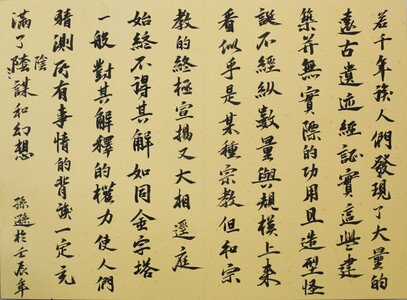 若干年後人們發現了大量的
遠古遺迹經証實這些建
築并無實際的功用且造型怪
誕不經縱數量與規模上來
看似乎是某種宗教但和宗
教的終極宣揚又大相逕庭
始終不得其解如同金字塔
一般對其解釋的權力使人們
猜測所有事情的背後一定充
滿了陰謀和幻想
陰
孫遜於壬辰年